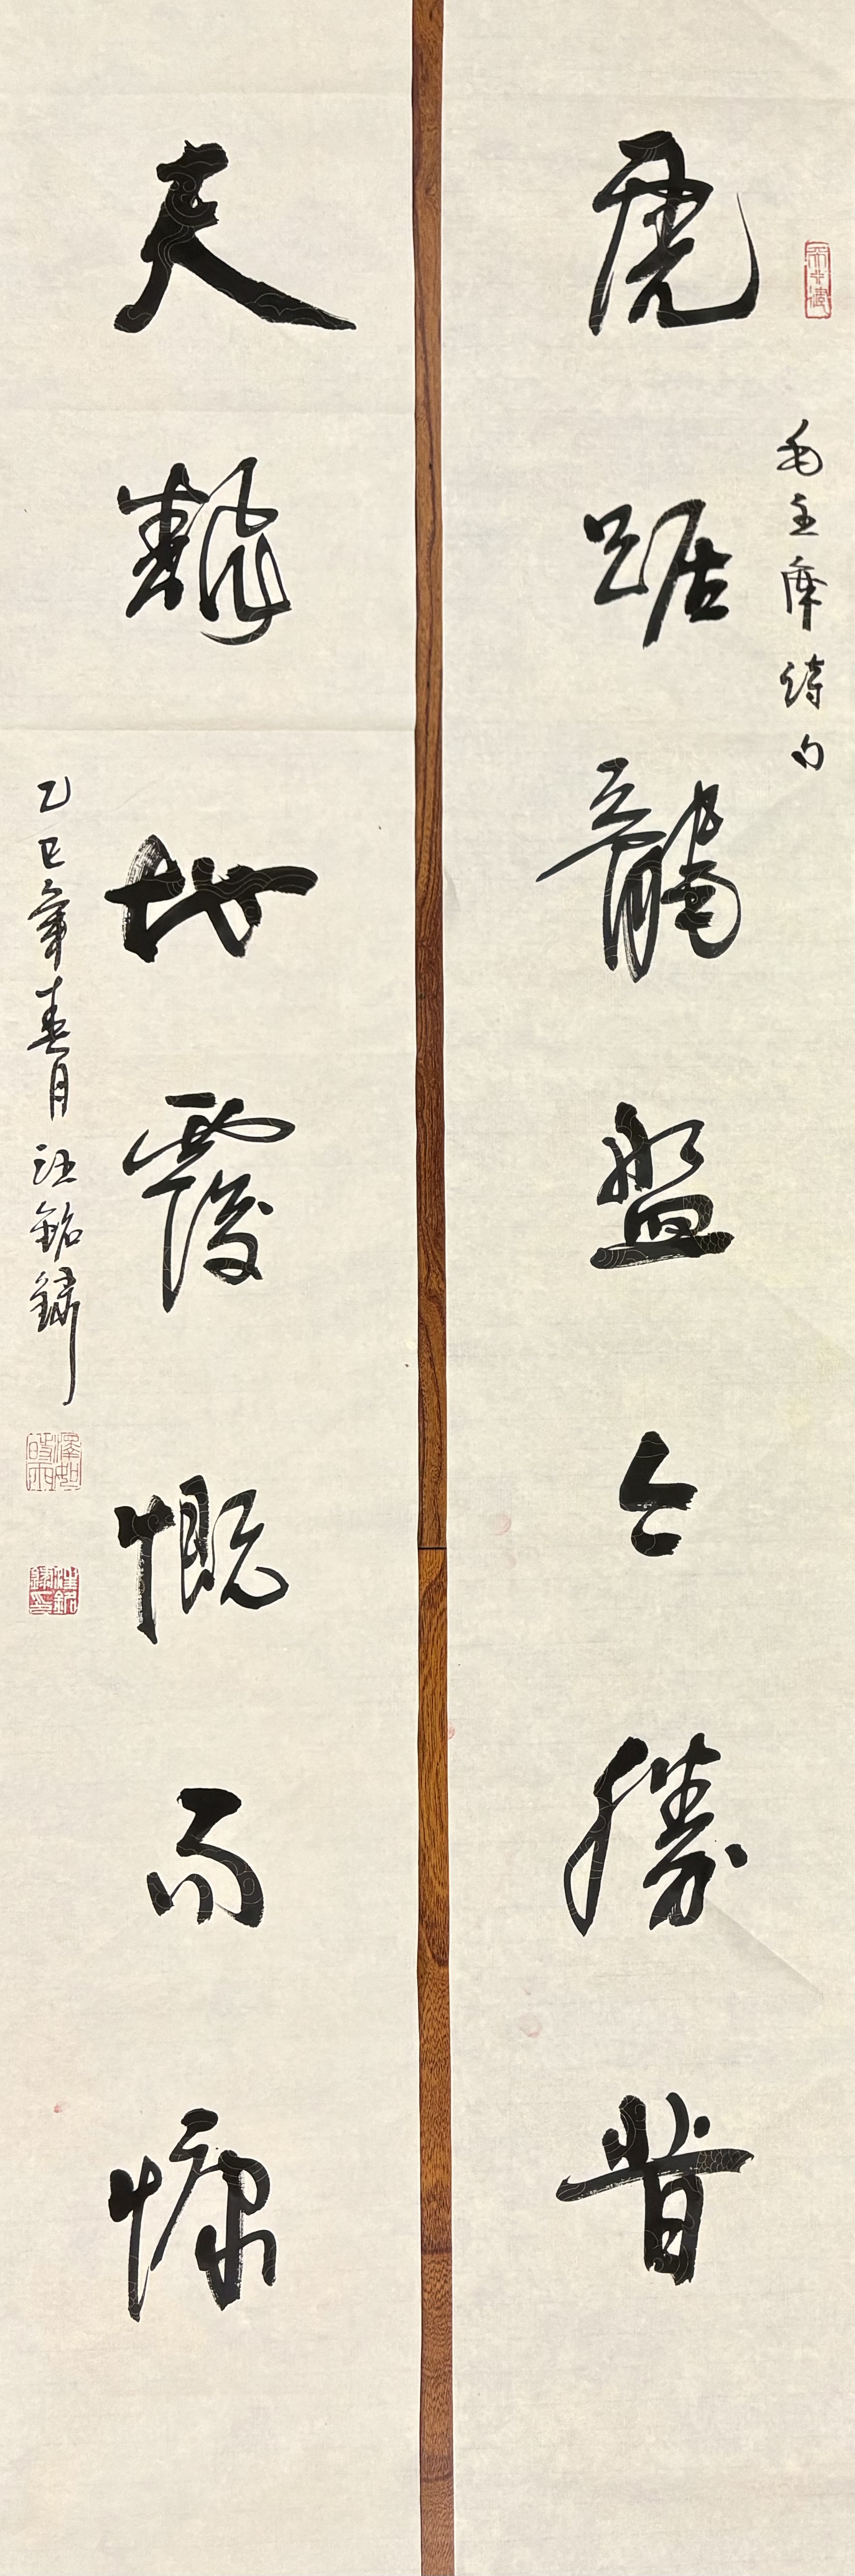 毛主席詩句
虎踞龍盤今勝昔
天飜地覆慨而慷
乙巳年春月汪銘鏽
澤如時雨